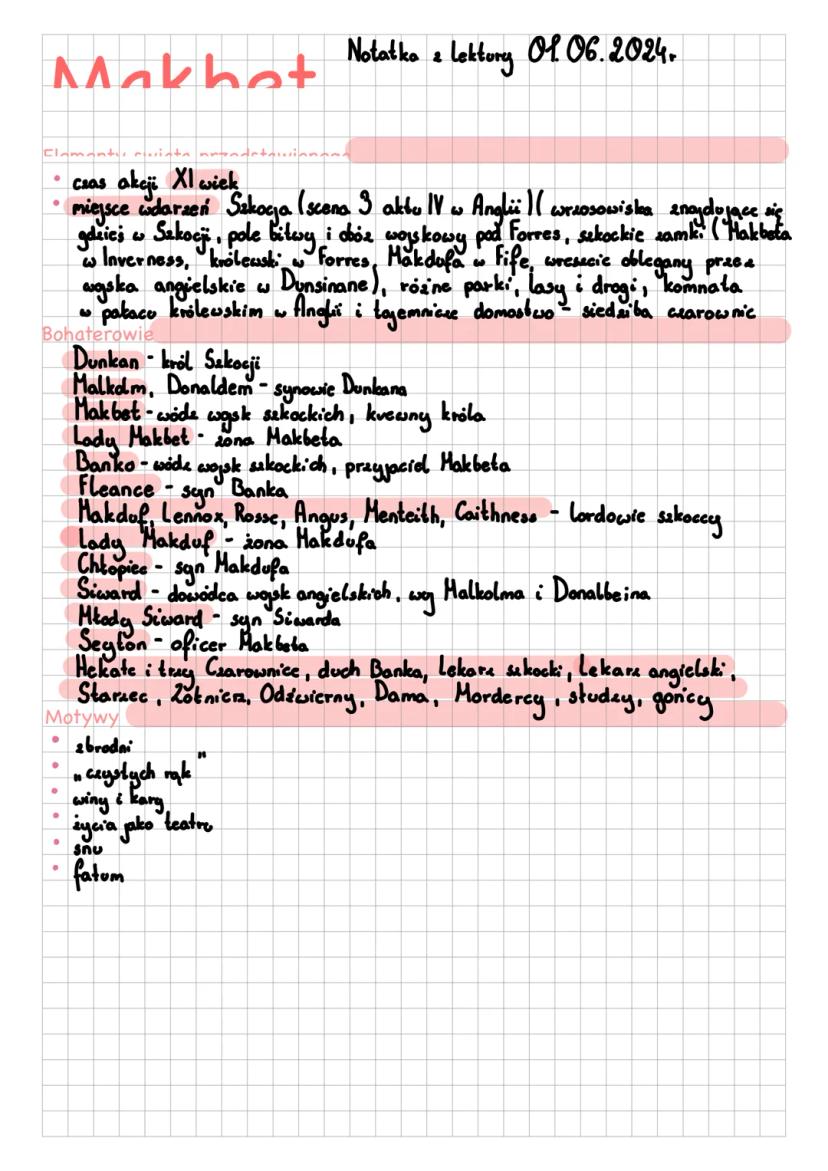 Makbet
Notatka z lektury 01.06.2024r.
Elementy świata przedstawionego
• czas akcji XI wiek
• miejsce wdarzeń Szkocja (scena 3 aktu IV w Anglii)( wrzosowiska znajdujące się
gdzieś w Szkocji, pole bitwy i obóz wojskowy pod Forres, szkockie zamki (Makbeta
w Inverness, królewski w Forres, Makdufa w Fife, wreszcie oblegany przez
wojska angielskie w Dunsinane), różne parki, lasy i drogi, komnata
w pałacu królewskim w Anglii i tajemnicze domostwo - siedziba czarownic
Bohaterowie
Dunkan - król Szkocji
Malkolm, Donaldem - synowie Dunkana
Makbet - wódz wojsk szkockich, krewny króla
Lady Makbet - żona Makbeta
Banko - wódz wojsk szkockich, przyjaciel Makbeta
Fleance - syn Banka
Makduf, Lennox, Rosse, Angus, Menteith, Caithness - lordowie szkoccy
Lady Makduf - żona Makdufa
Chłopiec - syn Makdufa
Siward - dowódca wojsk angielskich, wuj Malkolma i Donalbeina
Młody Siward - syn Siwarda
Seyton - oficer Makbeta
Hekate i trzy Czarownice, duch Banka, Lekarz szkocki, Lekarz angielski,
Starzec, Żołnierz, Odźwierny, Dama, Mordercy, słudzy, gońcy
Motywy
• zbrodni
• „czystych rąk"
• winy i kary
• życia jako teatru
• snu
• fatum